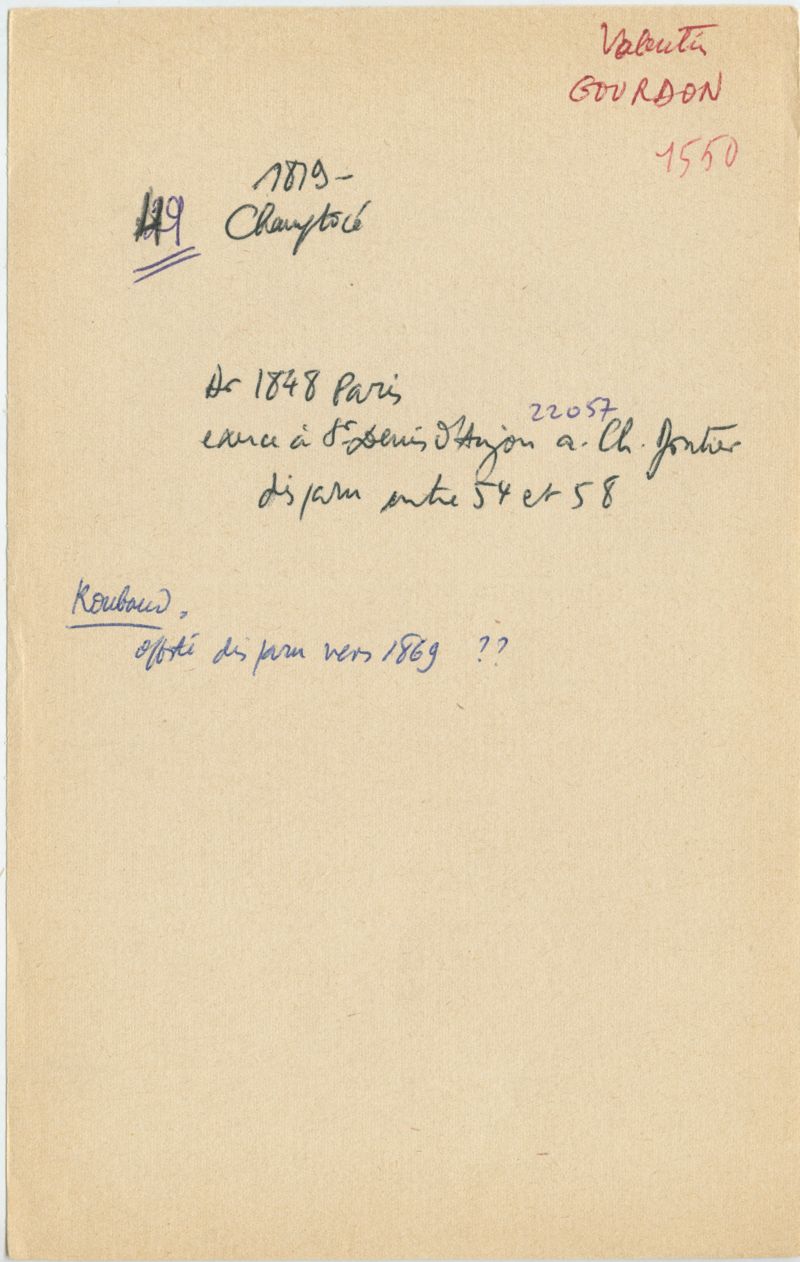 Valentin
GOURDON
1550
1819-
49 Champtocé
Dr 1848 Paris
22057
exerce à St Denis d'Anjou a. Ch. Gontier
disparu entre 54 et 58
Roubaud.
disparu vers 1869 ??